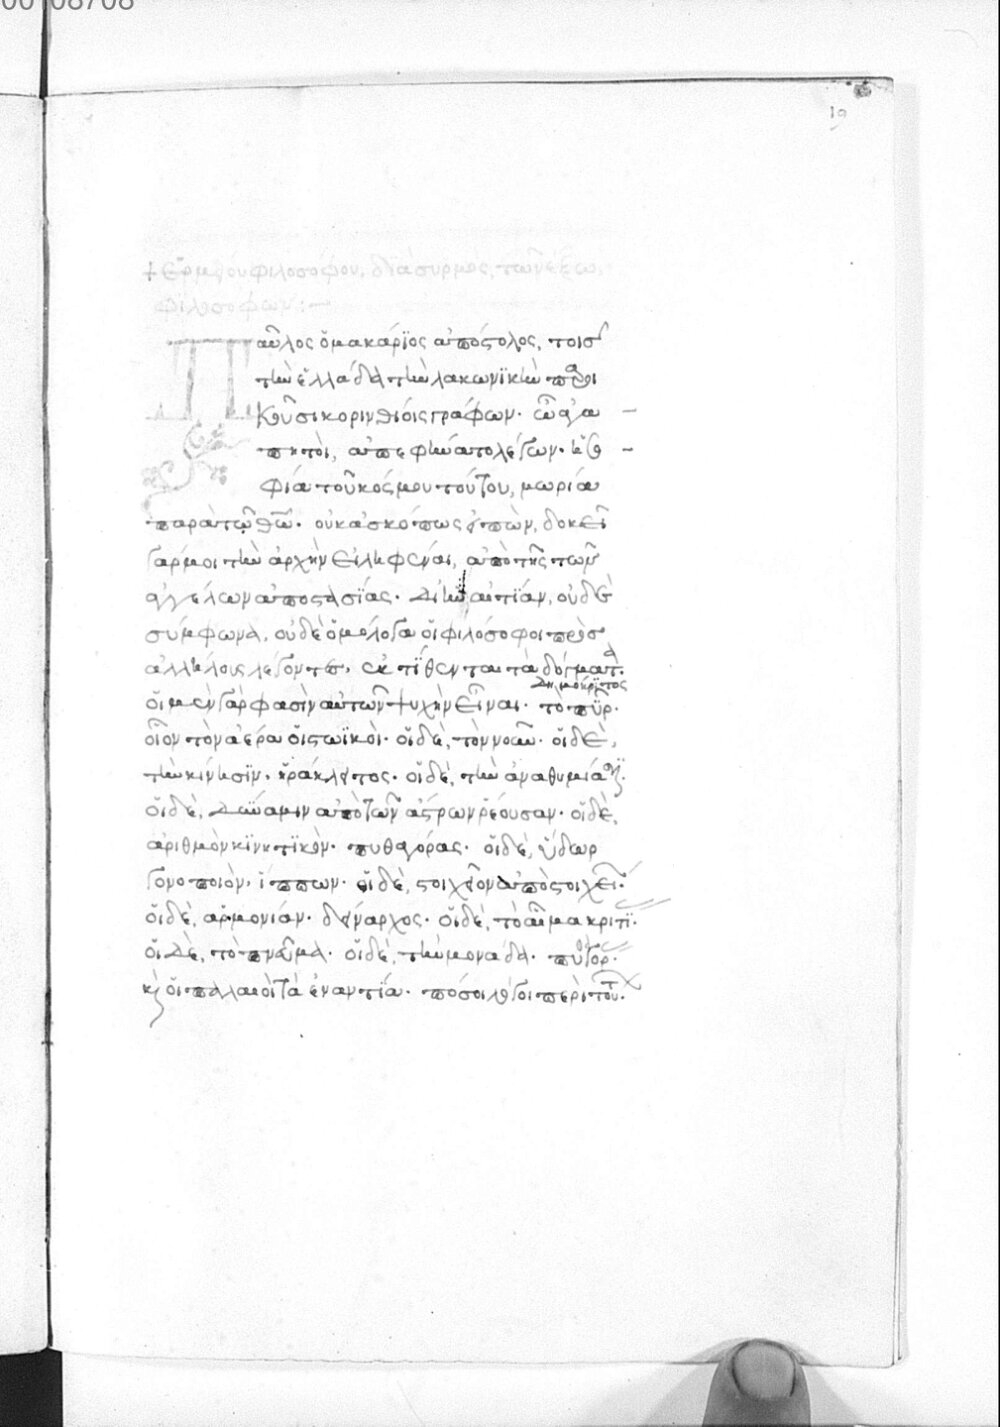 00108708
19
+ Ἑρμείου φιλοσόφου, διασυρμὸς, τῶν ἔξω,
φιλοσόφων :—
Παῦλος ὁ μακάριος ἀπόστολος, τοῖς
τὴν ἑλλάδα τὴν λακωνϊκὴν
κορινθίοις γράφων. ὦ ἀγα
πητοὶ, ἀπεφήνατο λέγων. ἡ σο
φία τοῦ κόσμου τούτου, μωρία
παρὰ τῷ θῶ. οὐκ ἀσκόπως εἰπὼν, δοκεῖ
γάρ μοι τὴν ἀρχὴν εἰληφέναι, ἀπὸ τῆς τῶν
ἀγγέλων ἀποστασίας. δι' ἣν αἰτίαν, οὐδὲ
σύμφωνα, οὐδὲ ὁμόλογα οἱ φιλόσοφοι πρὸς
ἀλλήλους λέγοντες, ἐκτίθενται τὰ δόγματ.
Δημόκριτος
οἱ μὲν γάρ φασὶν αὐτῶν ψυχὴν εἶναι. τὸ πῦρ.
οἷον τὸν ἀέρα οἱ στωϊκοὶ. οἱ δὲ, τὸν νοῦν. οἱ δὲ,
τὴν κίνησϊν. ἡράκλειτος. οἱ δὲ, τὴν ἀναθυμίασϊ.
οἱ δὲ, δύναμιν ἀπὸ τῶν ἄστρων ῥέουσαν. οἱ δὲ,
ἀριθμὸν κϊνητϊκὸν. πυθαγόρας. οἱ δὲ, ὕδωρ
γονοποιὸν, ἵππων. οἱ δὲ, στοιχεῖον ἀπὸ στοιχεί.
οἱ δὲ, ἁρμονίαν. δείναρχος. οἱ δὲ, τὸ αἷμα κριτϊ.
οἱ δὲ, τὸ πνεῦμα. οἱ δὲ, τὴν μονάδα. πυθαγόρ.
κὶ οἱ παλαιοὶ τὰ ἐναντία. πόσοι λόγοι περὶ τούτ.